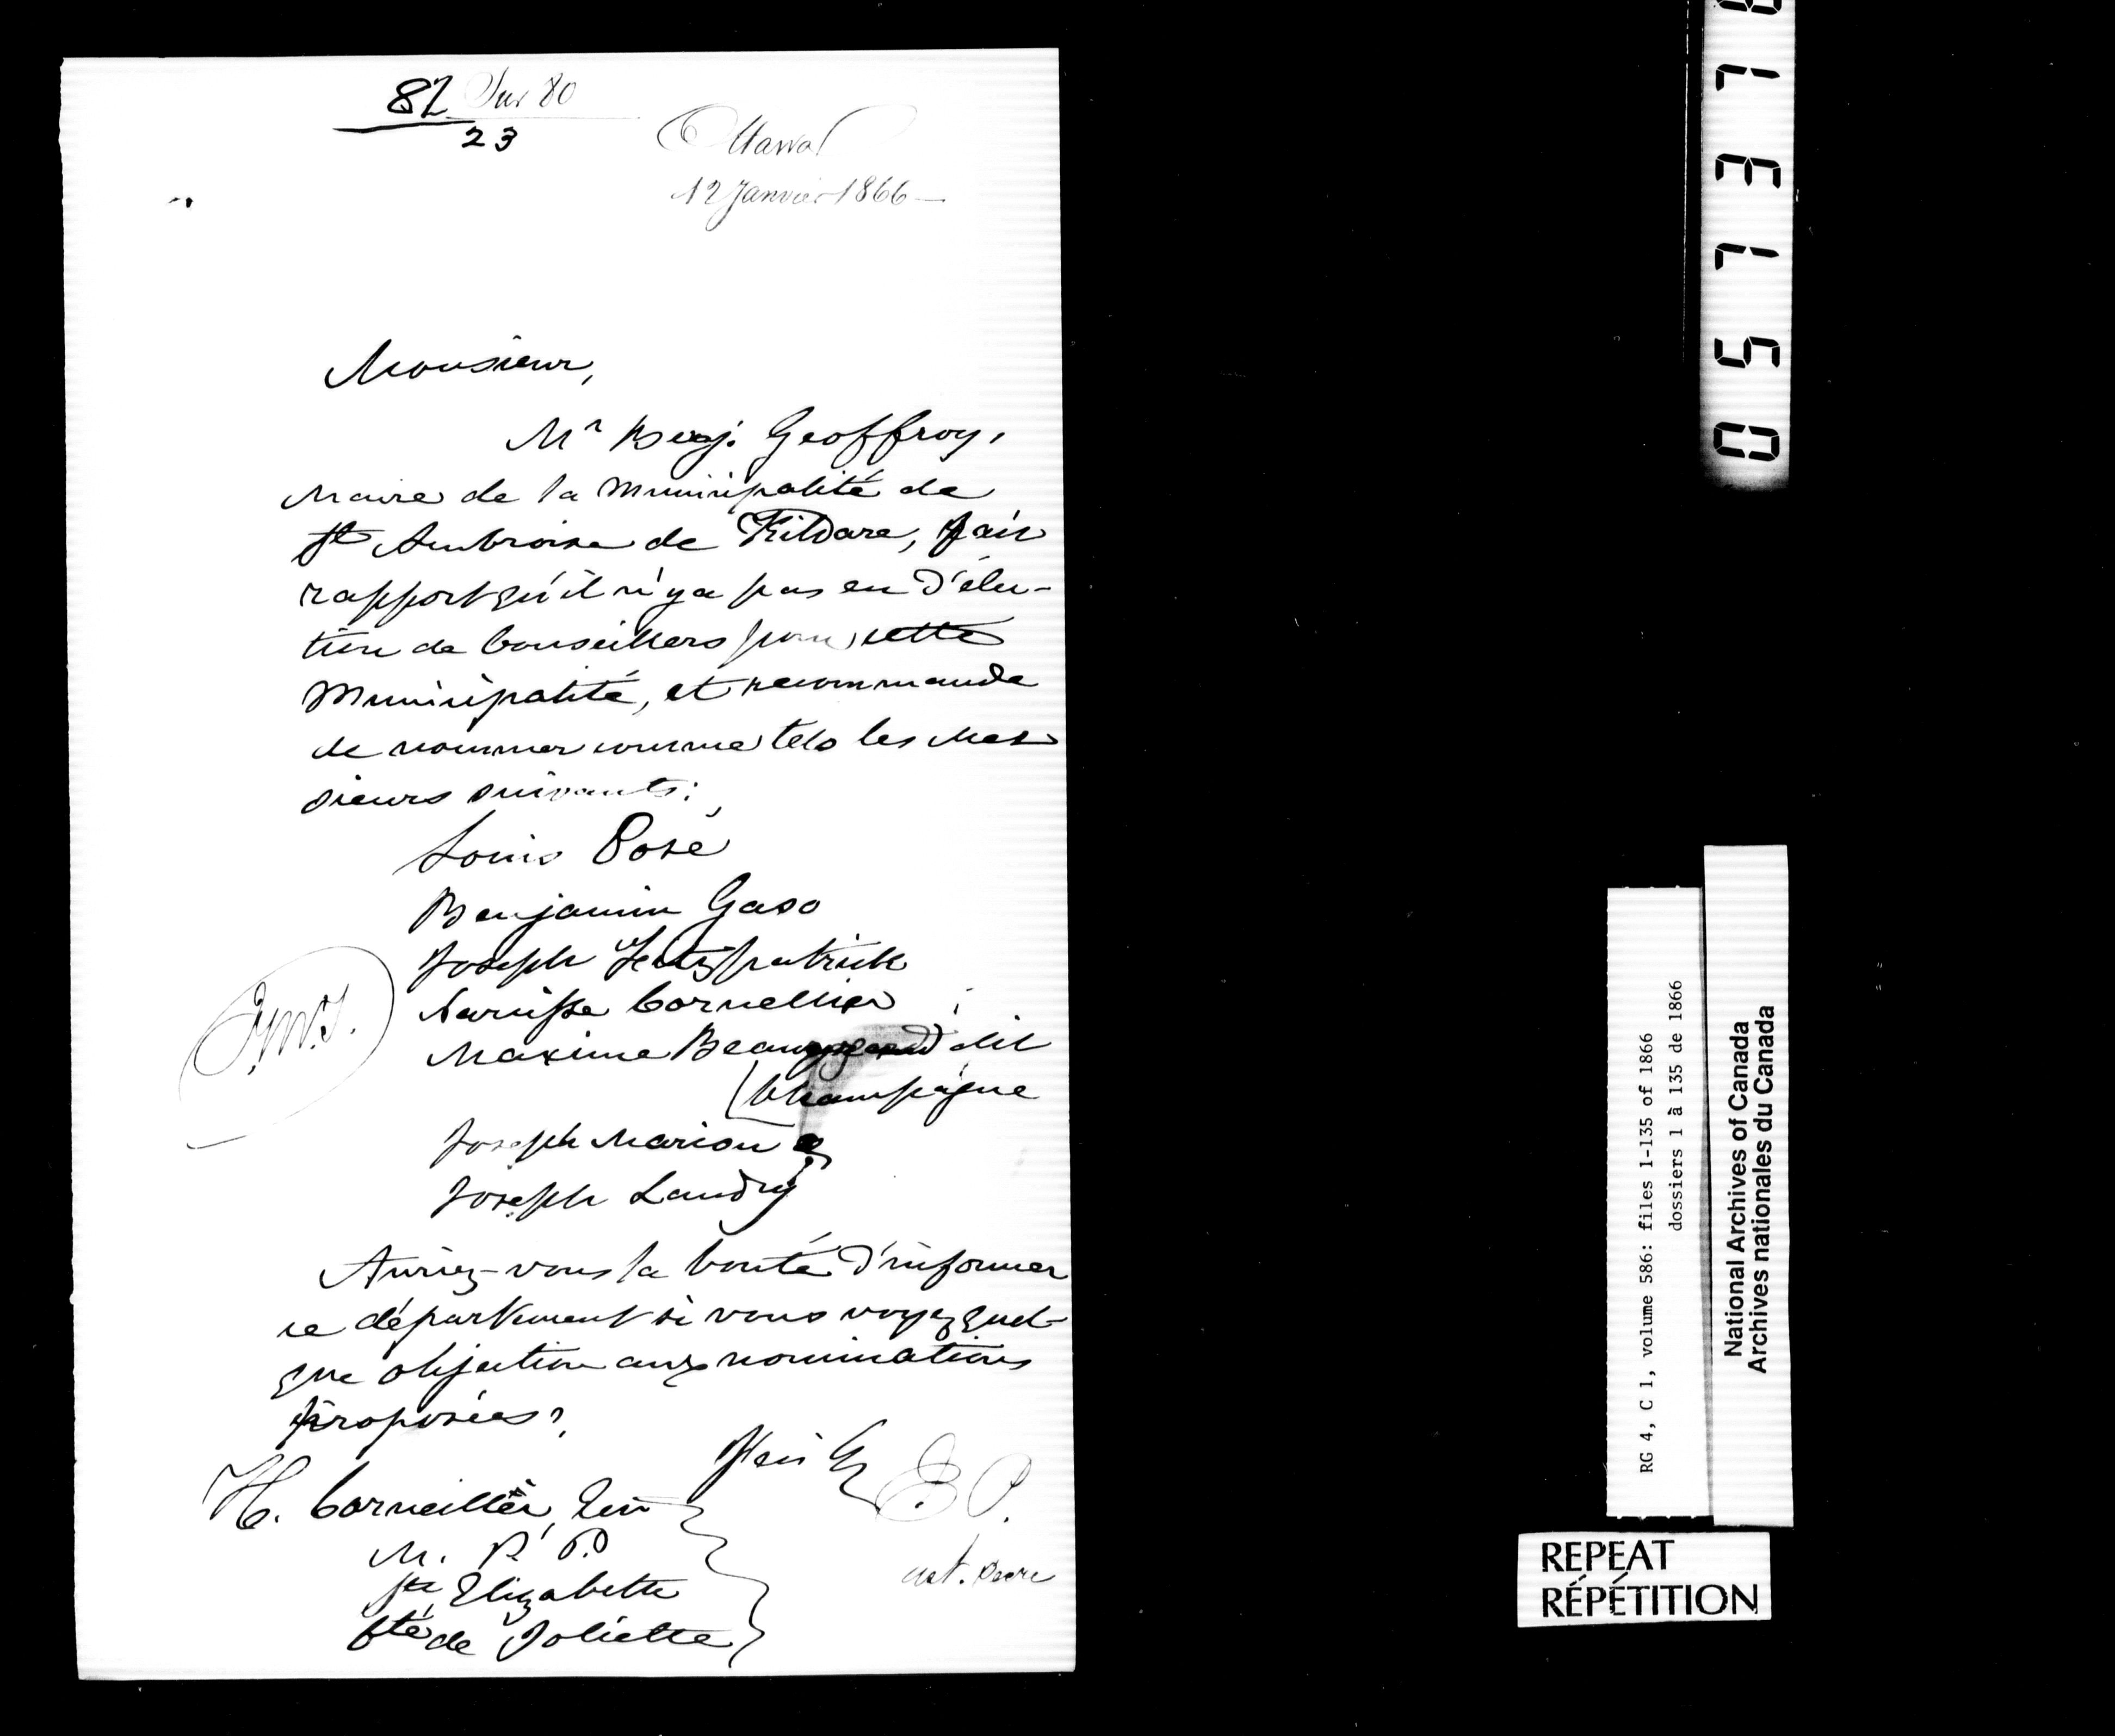 82 Sur 80
23
Ottawa
12 Janvier 1866 —
Monsieur,
Mr Benj. Geoffroy,
Maire de la Municipalité de
St Ambroise de Kildare, fait
rapport qu'il n'y a pas eu d'élec-
tion de Conseillers pour cette
Municipalité, et recommande
de nommer comme tels les Mes
sieurs suivants:
Louis
Benjamin
Joseph Feitzpatrick
Narcisse Cornellier
Maxime Beaugrand dit
(Champagne
Joseph Marion &
Joseph Landry
Auriez-vous la bonté d'informer
ce département si vous voyez quel-
que objection aux nominations
proposées?
J'ai &
E P.
H. Corneillier, Ecr
M. P. P.
Ste Elizabeth
Cté de Joliette
ast. secre
057378
RG 4, C 1, volume 586: files 1-135 of 1866
dossiers 1 à 135 de 1866
National Archives of Canada
Archives nationales du Canada
REPEAT
RÉPÉTITION